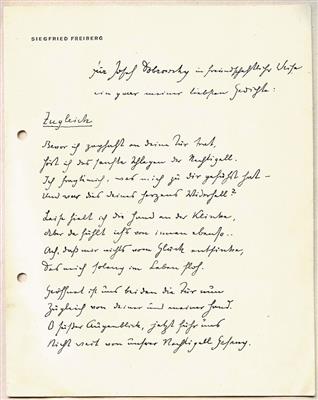 SIEGFRIED FREIBERG
für Josef Dobrowsky in freundschaftlicher Weise
ein paar meiner liebsten Gedichte:
Zugleich
Bevor ich zaghaft an deine Tür trat,
hört ich das sanfte Schlagen der Nachtigall.
Ich fragte mich, was mich zu dir geführt hat –
Und war dies deines Herzens Widerhall?
Leise hielt ich die Hand an der Klinke,
Aber da fühlt ich's von innen ebenso..
Ach, daß mir nichts vom Glück entsinke,
Das mich solang im Leben floh.
Geöffnet ist uns beiden die Tür nun
Zugleich von deiner und meiner Hand.
O süßer Augenblick, jetzt
Nicht weit von unsrer Nachtigall Gesang.